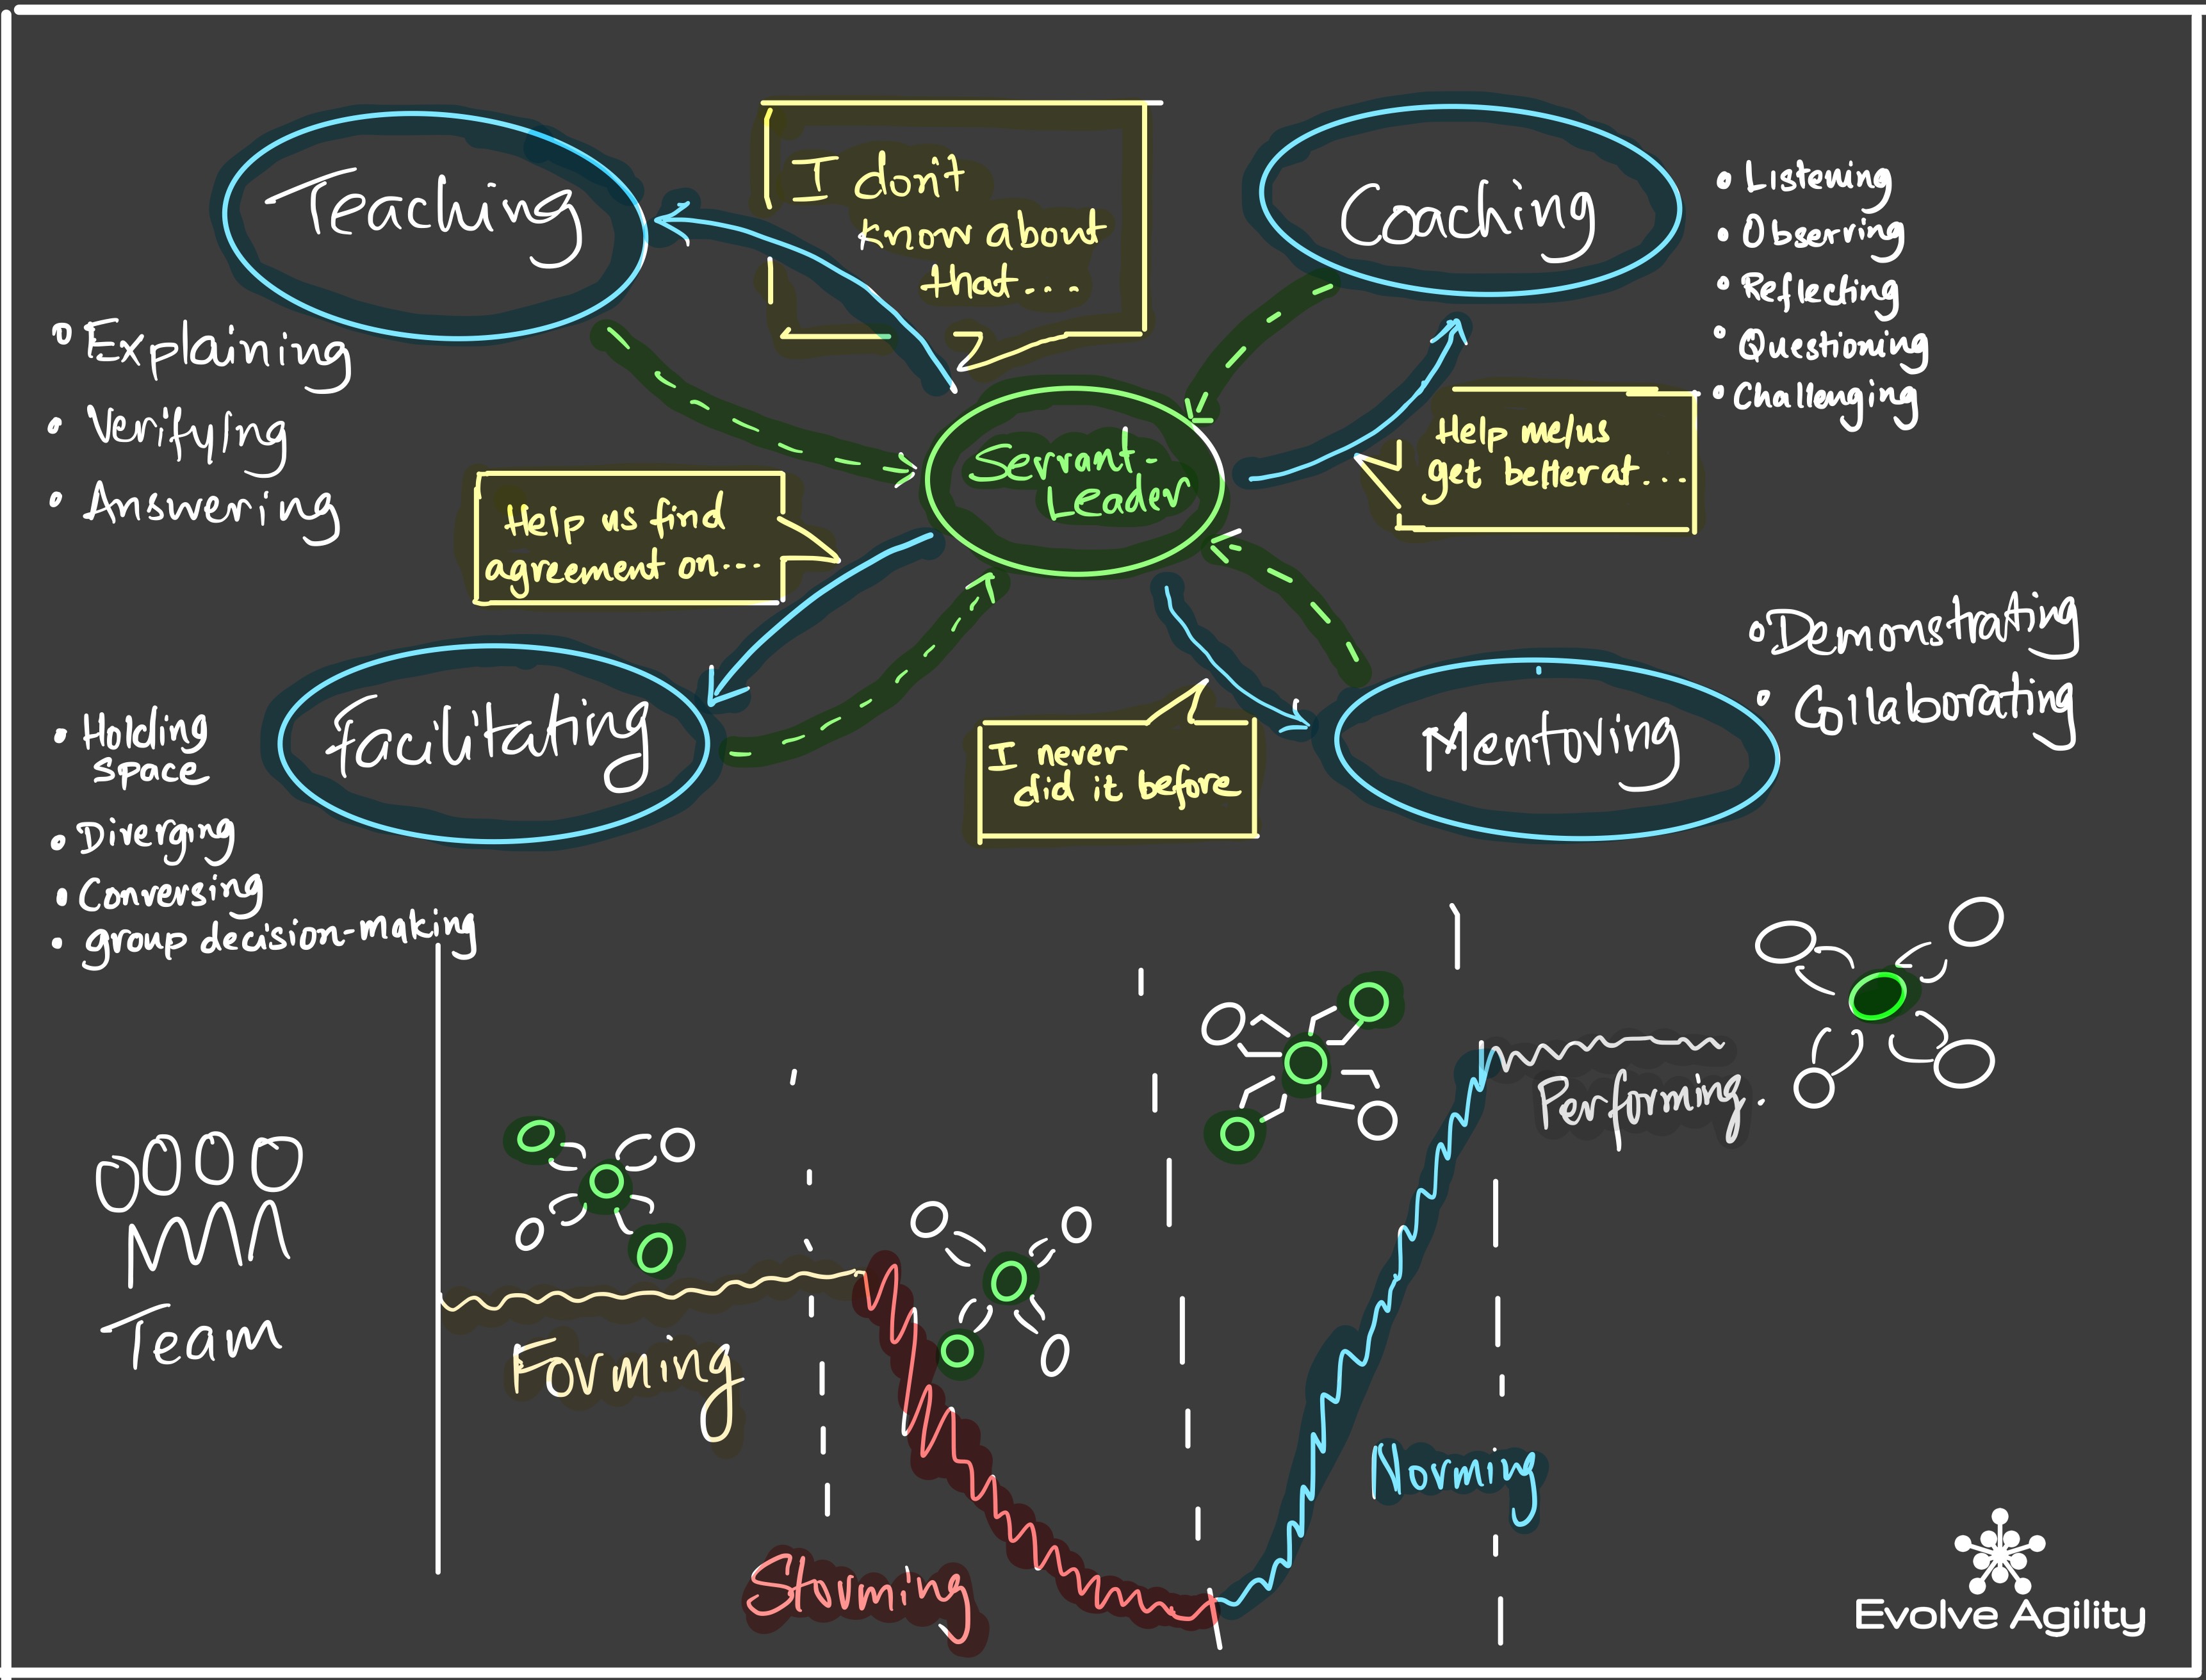 Teaching
• Explaining
• Verifying
• Answering
I don't
know about
that....
Coaching
• Listening
• Observing
• Reflecting
• Questioning
• Challenging
Servant-
Leader
Help me/us
get better at...
Help us find
agreement on....
Facilitating
• Holding
space
• Diverging
• Conversing
• group decision-making
I never
did it before
Mentoring
• Demonstrating
• Collaborating
Team
Forming
Storming
Norming
Performing.
Evolve Agility